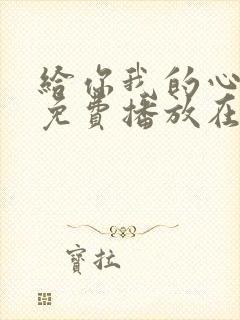 給你我的心
免費播放在
寶拉